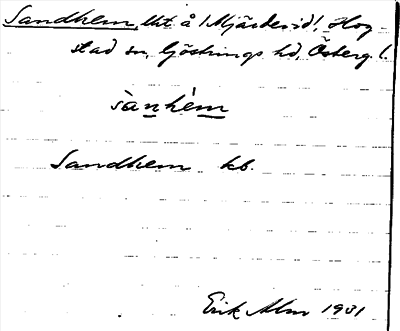 Sandhem, lht å Mjärdevid, Hog-
stad sn, Göstrings hd, Österg. l.
sànhèm
Sandhem kb.
Erik Alm 1931